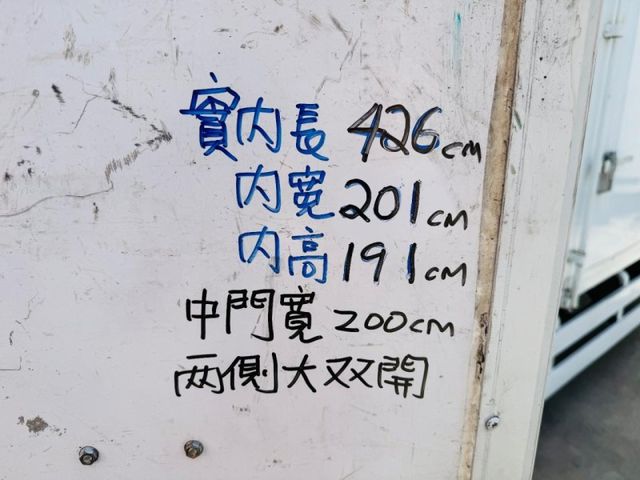 實內長 426cm
內寬 201cm
內高 191cm
中門寬 200cm
两側大双開